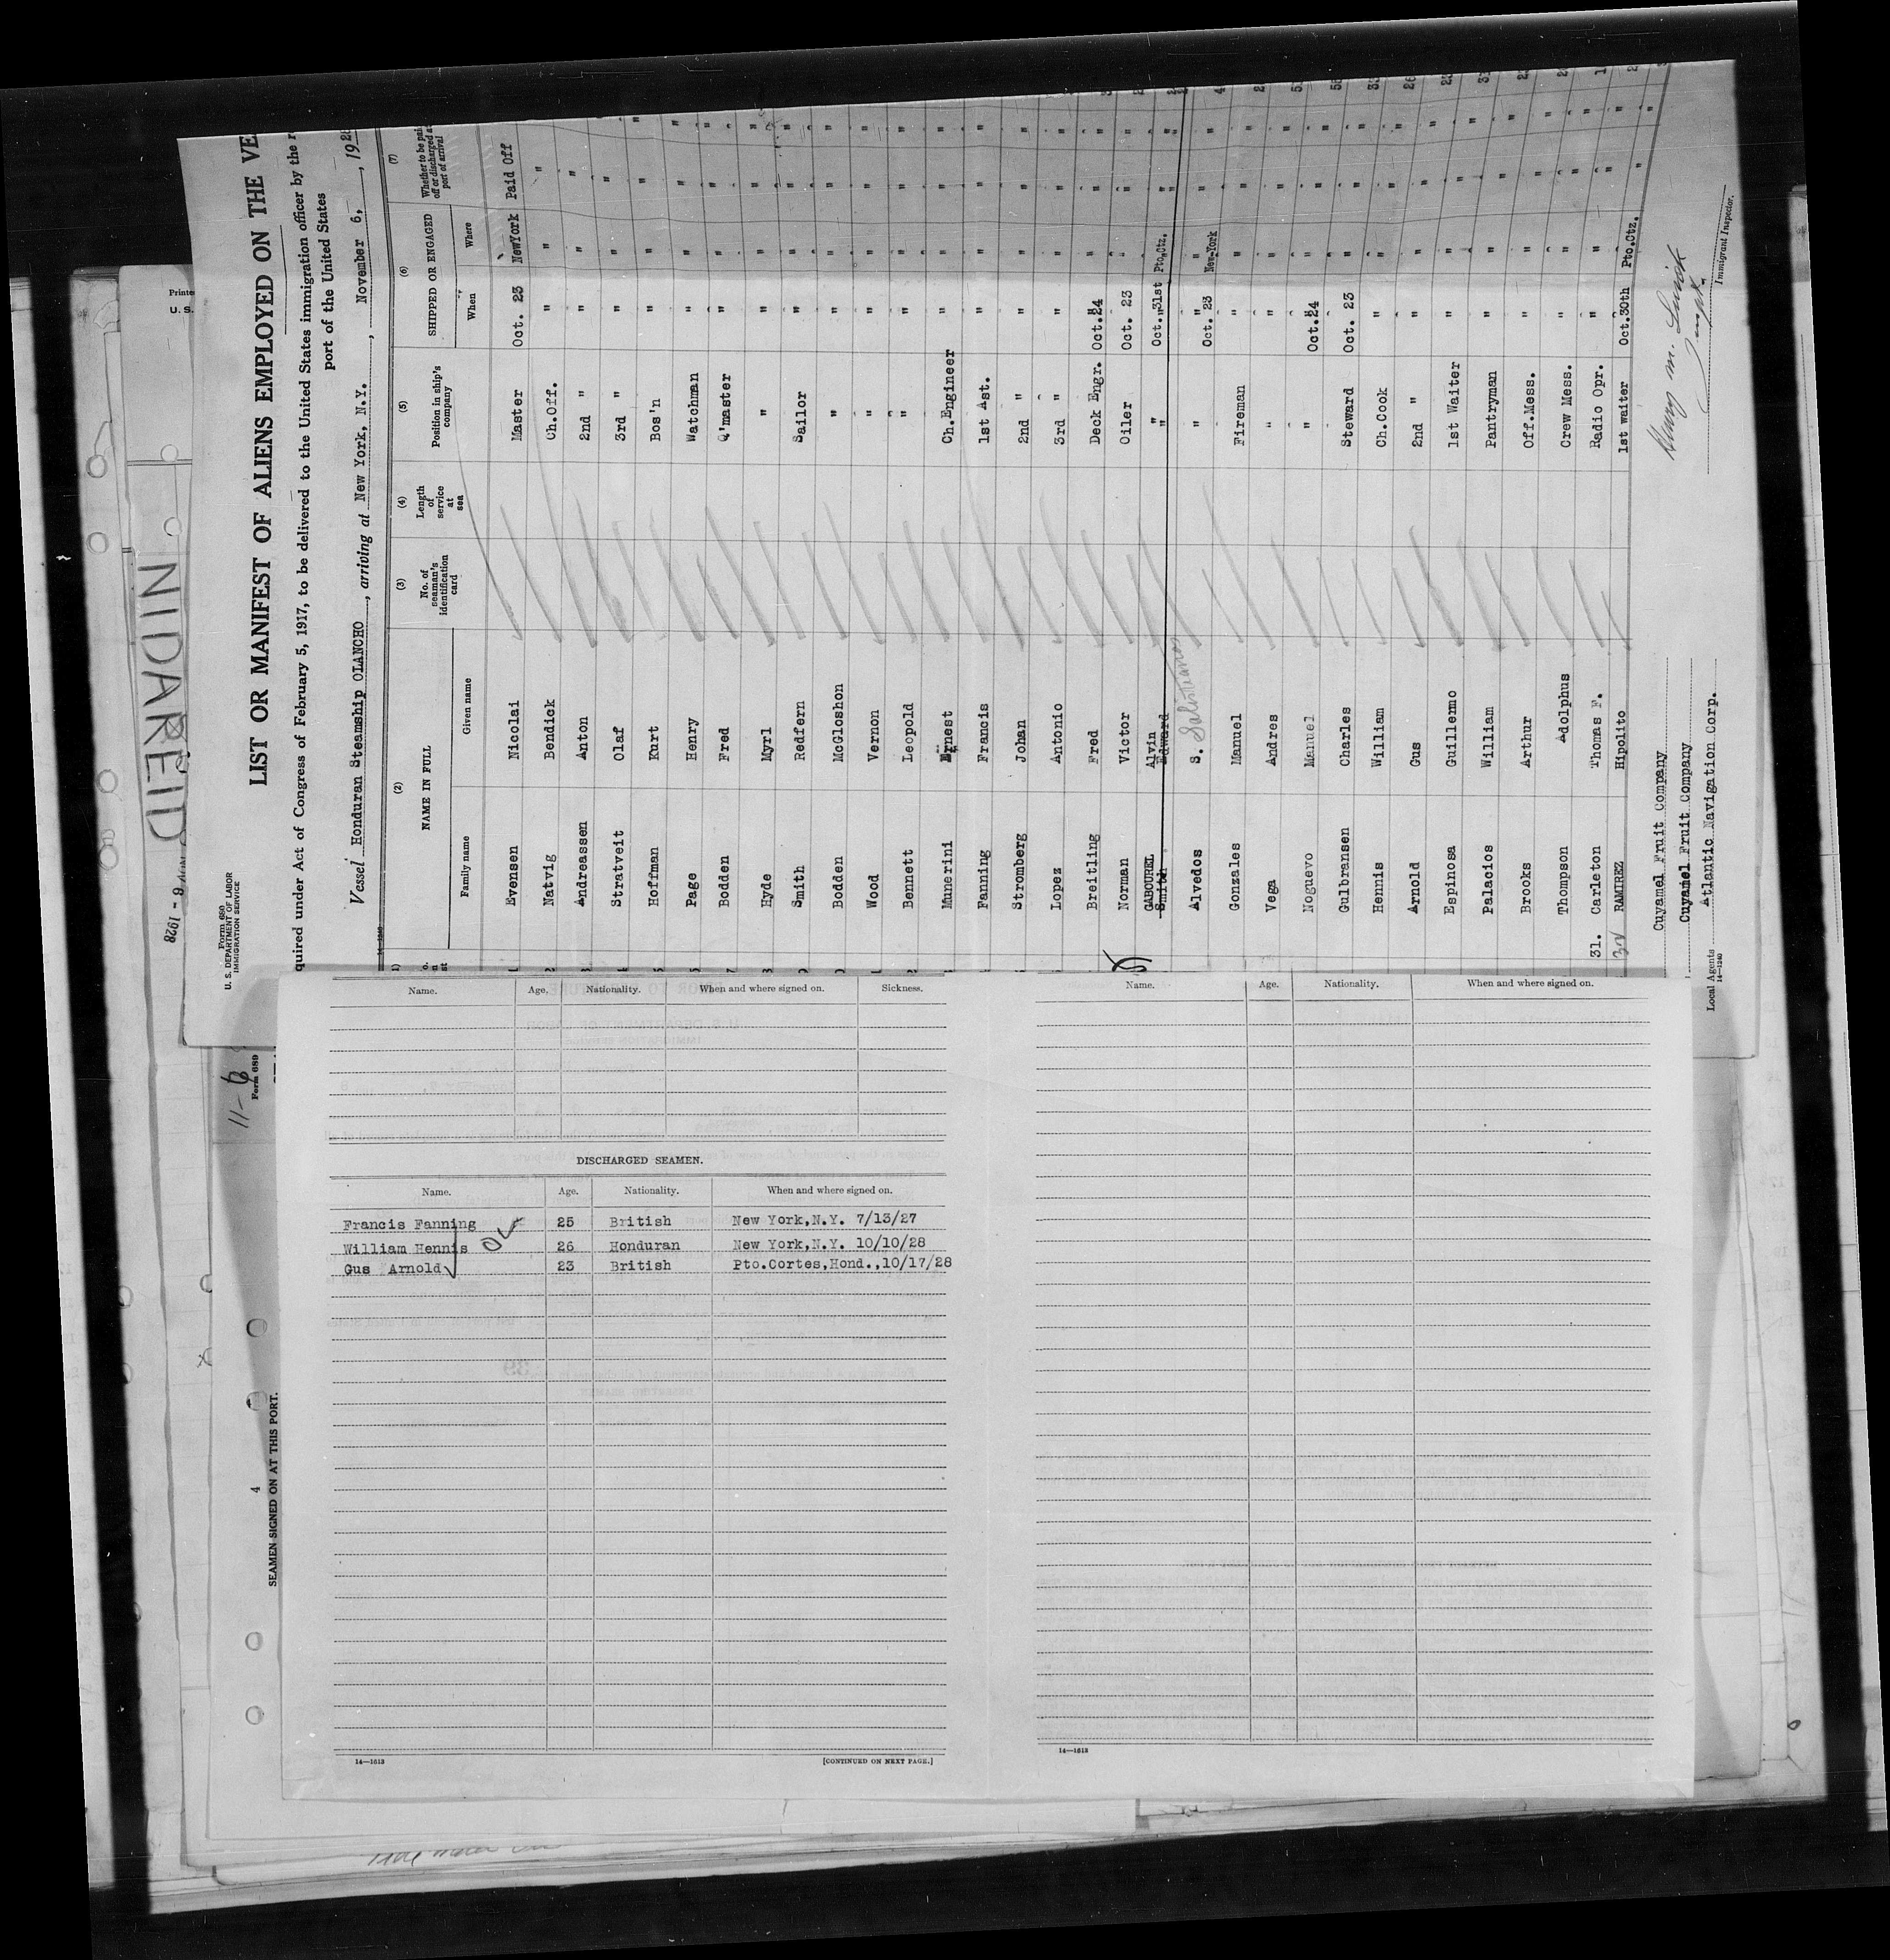 Form 680
U. S. DEPARTMENT OF LABOR
IMMIGRATION SERVICE
LIST OR MANIFEST OF ALIENS EMPLOYED ON THE VE
quired under Act of Congress of February 5, 1917, to be delivered to the United States immigration officer by the r
port of the United States
Vessel Honduran Steamship OLANCHO, arriving at New York, N.Y., November 6, , 192
14—1240
(2) (3) (4) (5) (6) (7)
NAME IN FULL No. of seaman's identification card Length of service at sea Position in ship's company SHIPPED OR ENGAGED Whether to be paid off or discharged at port of arrival
Family name Given name When Where
Evensen Nicolai Master Oct. 23 NewYork Paid Off
Natvig Bendick Ch.Off. " " "
Andreassen Anton 2nd " " " "
Stratveit Olaf 3rd " " " "
Hoffman Kurt Bos'n " " "
Page Henry Watchman " " "
Bodden Fred Q'master " " "
Hyde Myrl " " " "
Smith Redfern Sailor " " "
Bodden McGloshon " " " "
Wood Vernon " " " "
Bennett Leopold " " " "
Munerini Ernest Ch.Engineer " " "
Fanning Francis 1st Ast. " " "
Stromberg Johan 2nd " " " "
Lopez Antonio 3rd " " " "
Breitling Fred Deck Engr. Oct.24 " "
Norman Victor Oiler Oct. 23 " "
GABOUREL Alvin " Oct. 31st Pto.Ctz. "
Smith Edward " " " "
Alvedos S. Salistiano " Oct. 23 New-York "
Gonzales Manuel Fireman " " "
Vega Andres " " " "
Noguevo Manuel " Oct.24 " "
Gulbransen Charles Steward Oct. 23 " "
Hennis William Ch.Cook " " "
Arnold Gus 2nd " " " "
Espinosa Guillermo 1st Waiter " " "
Palacios William Pantryman " " "
Brooks Arthur Off.Mess. " " "
Thompson Adolphus Crew Mess. " " "
31. Carleton Thomas F. Radio Opr. " " "
32 RAMIREZ Hipolito 1st waiter Oct.30th Pto.Ctz. "
Cuyamel Fruit Company
Cuyamel Fruit Company
Local Agents Atlantic Navigation Corp.
14—1240
Immigrant Inspector.
Printe
U. S.
NIDAREID
- 9 1928
11-6
Form 689
4
SEAMEN SIGNED ON AT THIS PORT.
Name. Age. Nationality. When and where signed on. Sickness.
DISCHARGED SEAMEN.
Name. Age. Nationality. When and where signed on.
Francis Fanning 25 British New York,N.Y. 7/13/27
William Hennis OK 26 Honduran New York,N.Y. 10/10/28
Gus Arnold 23 British Pto.Cortes,Hond.,10/17/28
14—1613
[CONTINUED ON NEXT PAGE.]
Name. Age. Nationality. When and where signed on.
14—1613